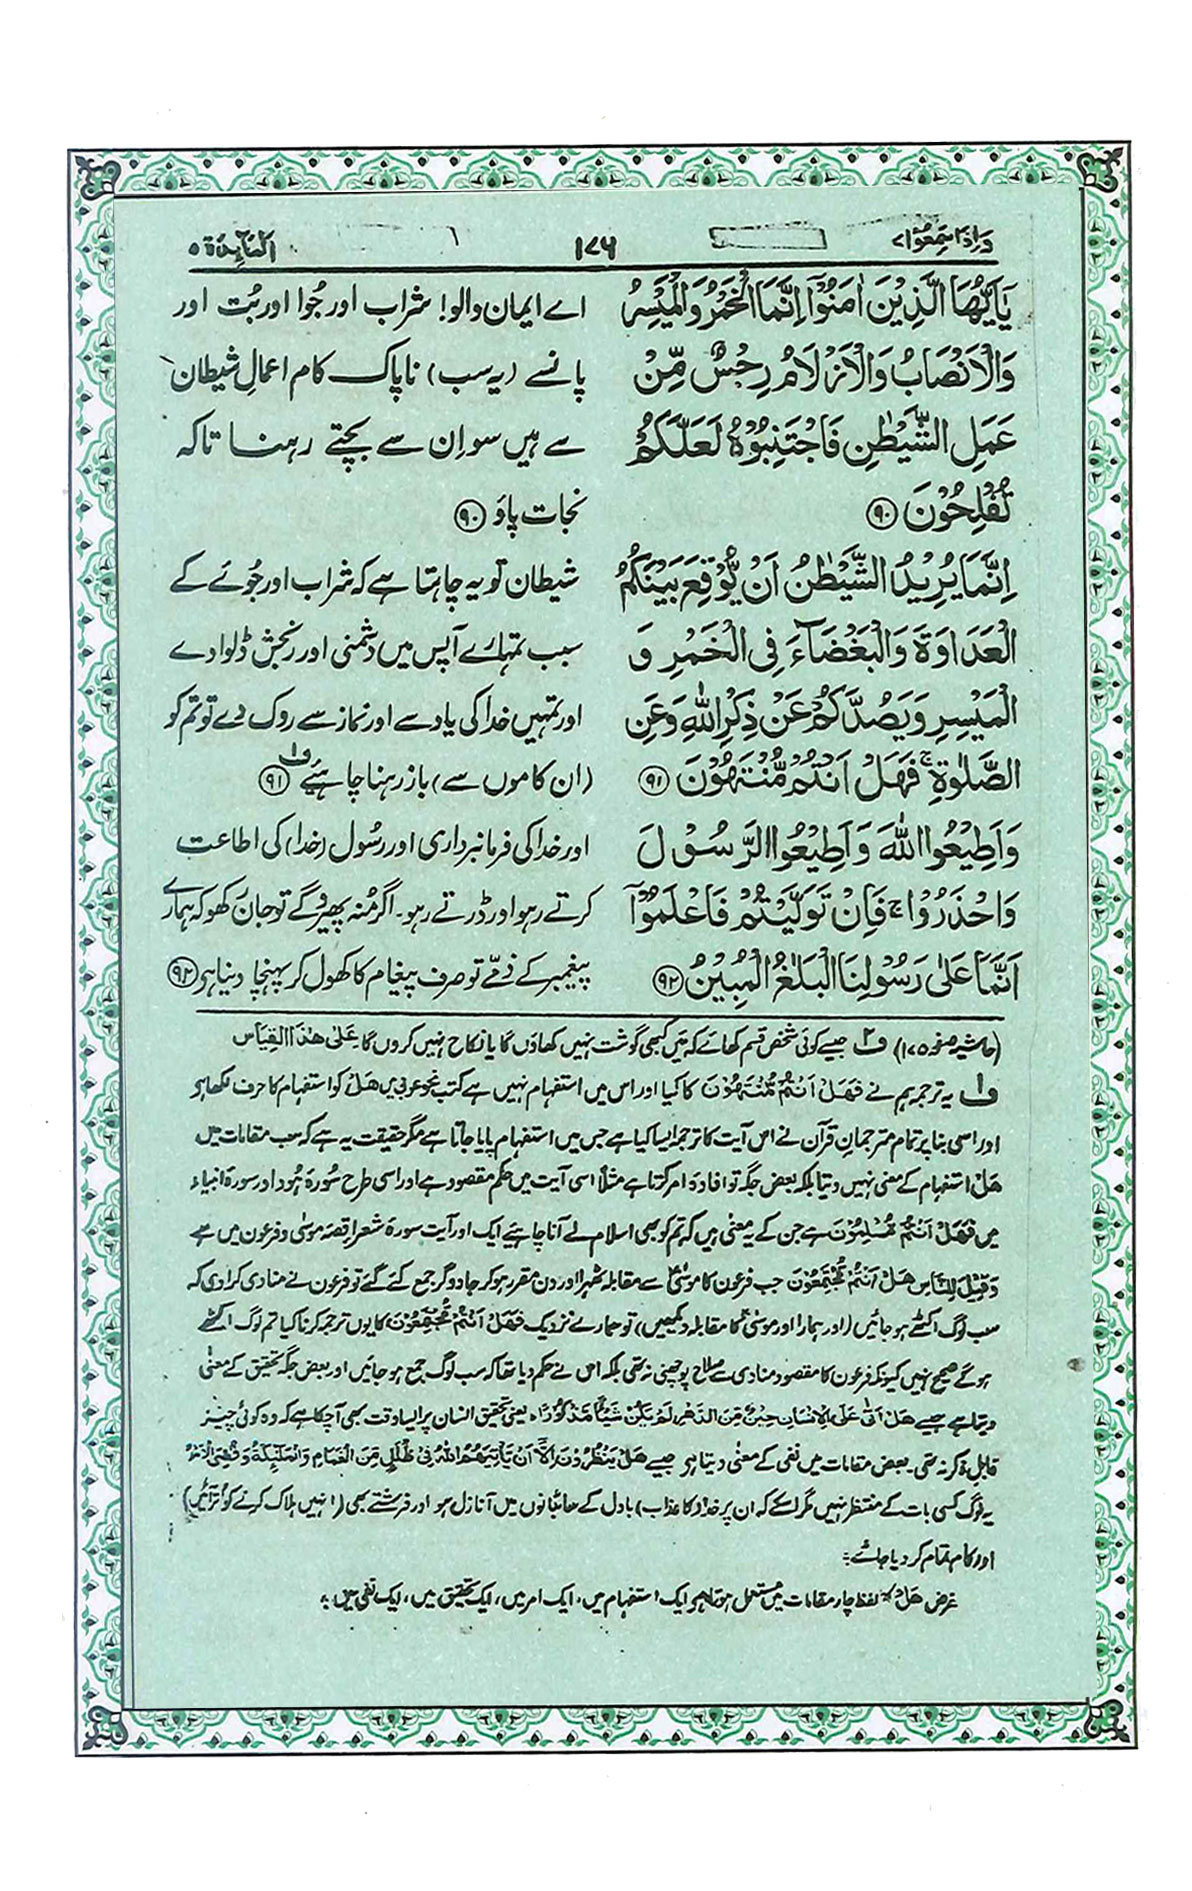 واذا سمعوا ۷ ۱۷۶ المآئدة ۵
يٰۤاَيُّهَا الَّذِيْنَ اٰمَنُوْۤا اِنَّمَا الْخَمْرُ وَالْمَيْسِرُ
وَالْاَنْصَابُ وَالْاَزْلَامُ رِجْسٌ مِّنْ
عَمَلِ الشَّيْطٰنِ فَاجْتَنِبُوْهُ لَعَلَّكُمْ
تُفْلِحُوْنَ ۹۰
اِنَّمَا يُرِيْدُ الشَّيْطٰنُ اَنْ يُّوْقِعَ بَيْنَكُمُ
الْعَدَاوَةَ وَالْبَغْضَآءَ فِى الْخَمْرِ وَ
الْمَيْسِرِ وَيَصُدَّكُمْ عَنْ ذِكْرِ اللّٰهِ وَعَنِ
الصَّلٰوةِ ۚ فَهَلْ اَنْتُمْ مُّنْتَهُوْنَ ۹۱
وَاَطِيْعُوا اللّٰهَ وَاَطِيْعُوا الرَّسُوْلَ
وَاحْذَرُوْا ۚ فَاِنْ تَوَلَّيْتُمْ فَاعْلَمُوْۤا
اَنَّمَا عَلٰى رَسُوْلِنَا الْبَلٰغُ الْمُبِيْنُ ۹۲
اے ایمان والو! شراب اور جُوا اور بُت اور
پانسے (یہ سب) ناپاک کام اعمالِ شیطان
سے ہیں سو ان سے بچتے رہنا تاکہ
نجات پاؤ ۹۰
شیطان تو یہ چاہتا ہے کہ شراب اور جُوئے کے
سبب تمہارے آپس میں دشمنی اور رنجش ڈلوا دے
اور تمہیں خدا کی یاد سے اور نماز سے روک دے تو تم کو
(ان کاموں سے) باز رہنا چاہئے ف۱ ۹۱
اور خدا کی فرمانبرداری اور رسُول (خدا) کی اطاعت
کرتے رہو اور ڈرتے رہو۔ اگر مُنہ پھیرو گے تو جان رکھو کہ ہمارے
پیغمبر کے ذمّے تو صرف پیغام کا کھول کر پہنچا دینا ہی ۹۲
(حاشیہ صفحہ ۱۷۵) ف۲ جیسے کوئی شخص قسم کھائے کہ میں کبھی گوشت نہیں کھاؤں گا یا نکاح نہیں کروں گا عَلٰی ھٰذَا الْقِیَاس
ف۱ یہ ترجمہ ہم نے فَهَلْ اَنْتُمْ مُّنْتَهُوْنَ کا کیا اور اس میں استفہام نہیں ہے کتب نحو عربی میں ھَلْ کو استفہام کا حرف لکھا ہو
اور اسی بنا پر تمام مترجمانِ قرآن نے اس آیت کا ترجمہ ایسا کیا ہے جس میں استفہام پایا جاتا ہے مگر حقیقت یہ ہے کہ سب مقامات میں
ھَلْ استفہام کے معنی نہیں دیتا بلکہ بعض جگہ تو افادۂ امر کرتا ہے مثلاً اسی آیت میں حکم مقصود ہے اور اسی طرح سُورۃ ہُود اور سورۃ انبیاء
میں فَهَلْ اَنْتُمْ مُّسْلِمُوْنَ ہے جن کے یہ معنی ہیں کہ تم کو بھی اسلام لے آنا چاہئے ایک اور آیت سورۃ شعرا قصہ موسیٰ و فرعون میں ہے
وَقِيْلَ لِلنَّاسِ هَلْ اَنْتُمْ مُّجْتَمِعُوْنَ جب فرعون کا موسیٰ سے مقابلہ ٹھہرا اور دن مقرر ہو کر جادوگر جمع کئے گئے تو فرعون نے منادی کرا دی کہ
سب لوگ اکٹھے ہو جائیں (اور ہمارا اور موسیٰ کا مقابلہ دیکھیں) تو ہمارے نزدیک فَهَلْ اَنْتُمْ مُّجْتَمِعُوْنَ کا یوں ترجمہ کرنا کیا تم لوگ اکٹھے
ہو گے صحیح نہیں کیونکہ فرعون کا مقصود منادی سے صلاح پوچھنی نہ تھی بلکہ اس نے حکم دیا تھا کہ سب لوگ جمع ہو جائیں اور بعض جگہ تحقیق کے معنی
دیتا ہے جیسے هَلْ اَتٰى عَلَى الْاِنْسَانِ حِيْنٌ مِّنَ الدَّهْرِ لَمْ يَكُنْ شَيْئًا مَّذْكُوْرًا، یعنی تحقیق انسان پر ایسا وقت بھی آ چکا ہے کہ وہ کوئی چیز
قابلِ ذکر نہ تھی۔ بعض مقامات میں نفی کے معنی دیتا ہو جیسے هَلْ يَنْظُرُوْنَ اِلَّاۤ اَنْ يَّاْتِيَهُمُ اللّٰهُ فِيْ ظُلَلٍ مِّنَ الْغَمَامِ وَالْمَلٰٓئِكَةُ وَقُضِيَ الْاَمْرُ
یہ لوگ کسی بات کے منتظر نہیں مگر اسکے کہ ان پر خدا (کا عذاب) بادل کے سائبانوں میں آ نازل ہو اور فرشتے بھی (انہیں ہلاک کرنے کو اُتر آئیں)
اور کام تمام کر دیا جائے۔
غرض ھَلْ کا لفظ چار مقامات میں مستعمل ہوتا ہو ایک استفہام میں، ایک امر میں، ایک تحقیق میں، ایک نفی میں۔